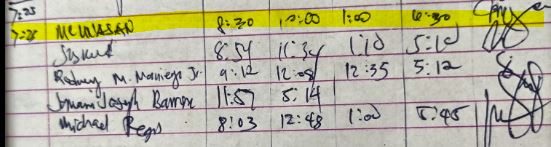 7:25
7:25 MCNASAN 8:30 12:00 1:00 6:30
8:54 11:34 1:10 5:10
Rodney M. Maniego Jr. 9:12 12:08 12:35 5:12
Joseph 11:57 5:14
Michael Regs 8:03 12:48 1:00 5:45